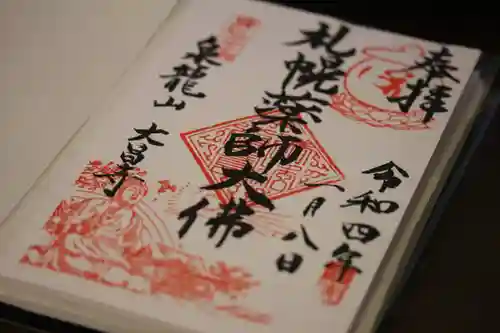 奉拝
令和四年
一月八日
札幌薬師大佛
泉龍山
大昌寺